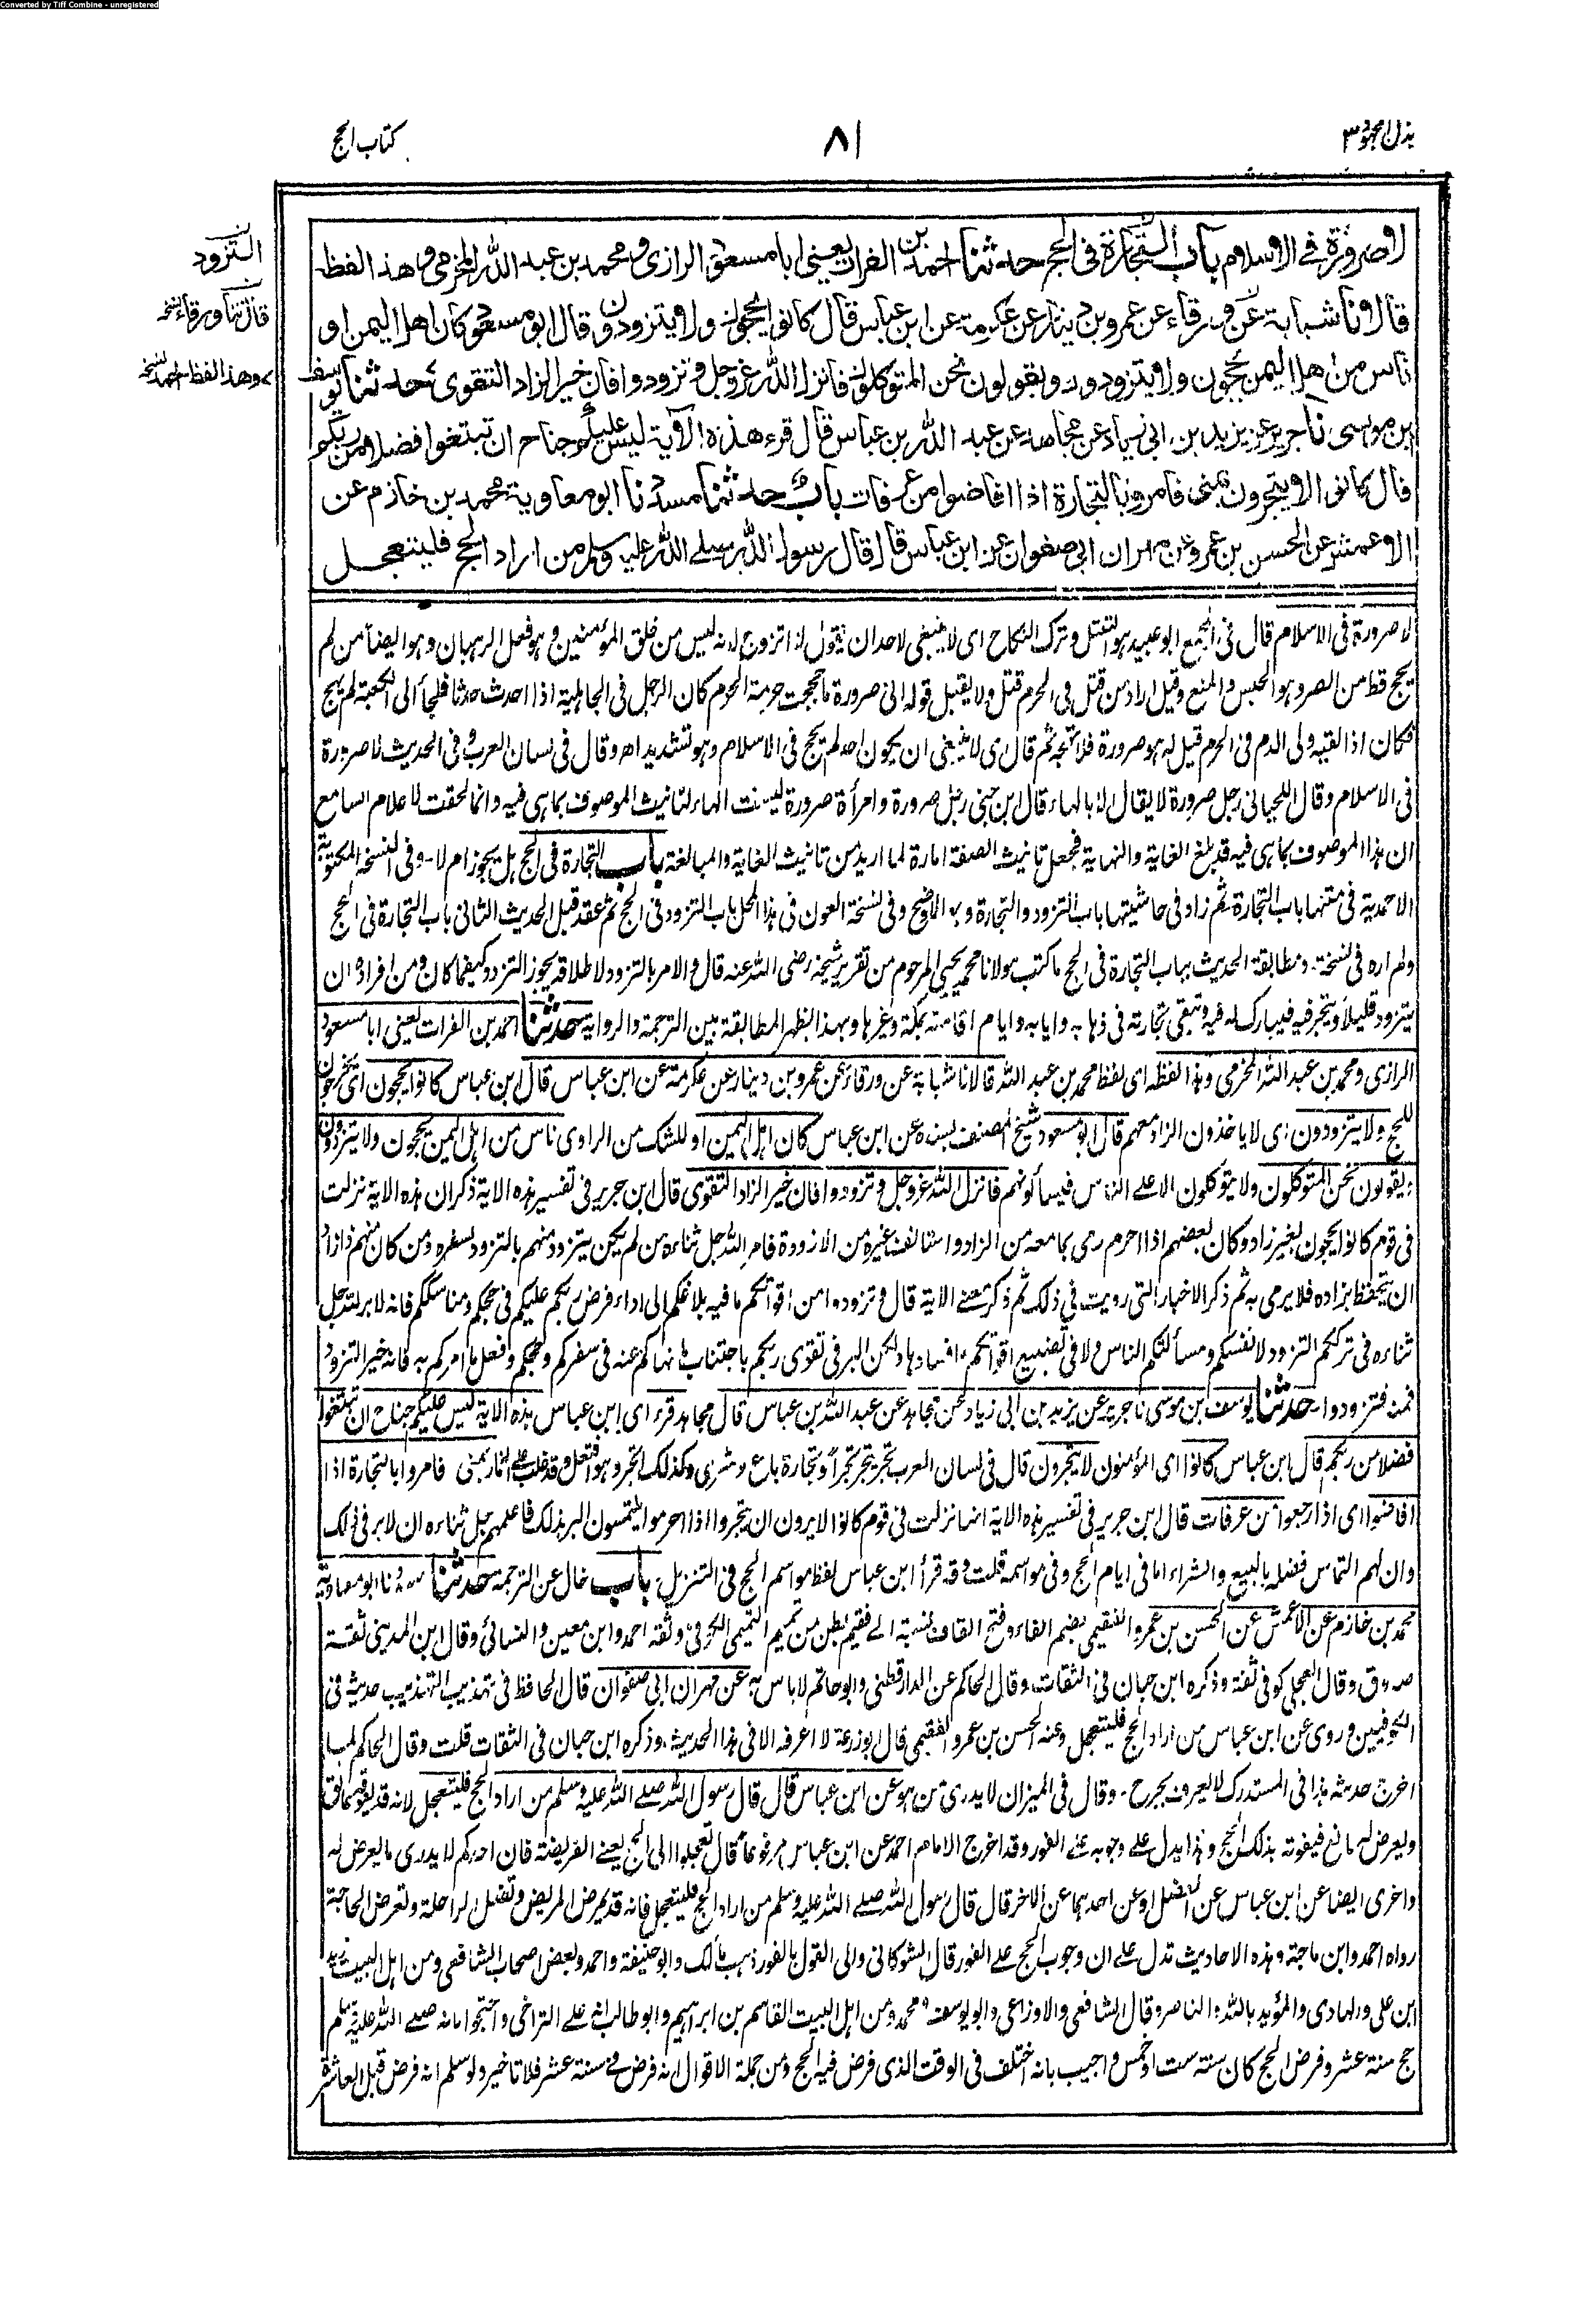 Converted by Tiff Combine - unregistered
بذل المجهود ٣
٨١
كتاب الحج
لا صرورة فى الاسلام باب التجارة فى الحج حدثنا احمد بن الفرات يعنى ابا مسعود الرازى ومحمد بن عبد الله المخرمى وهذا لفظه
قالا نا شبابة عن ورقاء عن عمرو بن دينار عن عكرمة عن ابن عباس قال كانوا يحجون ولا يتزودون قال ابو مسعود كان اهل اليمن او
ناس من اهل اليمن يحجون ولا يتزودون ويقولون نحن المتوكلون فانزل الله عز وجل وتزودوا فان خير الزاد التقوى حدثنا يوسف
ابن موسى نا جرير عن يزيد بن ابى زياد عن مجاهد عن عبد الله بن عباس قال قرء هذه الآية ليس عليكم جناح ان تبتغوا فضلا من ربكم
قال كانوا لا يتجرون بمنى فامروا بالتجارة اذا افاضوا من عرفات باب حدثنا مسدد نا ابو معاوية محمد بن خازم عن
الاعمش عن الحسن بن عمرو عن مهران ابى صفوان عن ابن عباس قال قال رسول الله صلى الله عليه وسلم من اراد الحج فليتعجل
التزود
قال ثنا ورقاء نسخه
وهذا لفظ احمد نسخه
لا صرورة فى الاسلام قال فى المجمع ابو عبيد هو التبتل وترك النكاح اى لا ينبغى لاحد ان يقول لا اتزوج لانه ليس من خلق المؤمنين وهو فعل الرهبان وهو ايضا من لم
يحج قط من الصر وهو الحبس والمنع وقيل اراد من قتل فى الحرم قتل ولا يقبل قوله انى صرورة ما حججت حرمة الحرم كان الرجل فى الجاهلية اذا احدث حدثا فلجأ الى الكعبة لم يهج
فكان اذا لقيه ولى الدم فى الحرم قيل له هو صرورة فلا تهجه ثم قال اى لا ينبغى ان يكون احد لم يحج فى الاسلام وهو تشديد اه وقال فى لسان العرب وفى الحديث لا صرورة
فى الاسلام وقال اللحيانى رجل صرورة لا يقال الا بالهاء قال ابن جنى رجل صرورة وامرأة صرورة ليست الهاء لتانيث الموصوف بما هى فيه وانما لحقت لاعلام السامع
ان هذا الموصوف بما هى فيه قد بلغ الغاية والنهاية فجعل تانيث الصفة امارة لما اريد من تانيث الغاية والمبالغة باب التجارة فى الحج هل يجوز ام لا- وفى النسخة المكتوبة
الاحمدية فى متنها باب التجارة ثم زاد فى حاشيتها باب التزود والتجارة وهو الاوضح وفى نسخة العون فى هذا المحل باب التزود فى الحج ثم عقد قبل الحديث الثانى باب التجارة فى الحج
ولم اره فى نسخة- ومطابقة الحديث بباب التجارة فى الحج ما كتب مولانا محمد يحيى المرحوم من تقرير شيخه رضى الله عنه قال والامر بالتزود لاطلاقه يجوز التزود كيفما كان ومن افراده ان
يتزود قليلا ويتجر فيه فيبارك له فيه وتبقى تجارته فى ذهابه وايابه وايام اقامته بمكة وغيرها وبهذا يظهر المطابقة بين الترجمة والرواية حدثنا احمد بن الفرات يعنى ابا مسعود
الرازى ومحمد بن عبد الله المخرمى وهذا لفظه اى لفظ محمد بن عبد الله قالا نا شبابة عن ورقاء عن عمرو بن دينار عن عكرمة عن ابن عباس قال ابن عباس كانوا يحجون اى يخرجون
للحج ولا يتزودون اى لا ياخذون الزاد معهم قال ابو مسعود شيخ المصنف بسنده عن ابن عباس كان اهل اليمن او للشك من الراوى ناس من اهل اليمن يحجون ولا يتزودون
ويقولون نحن المتوكلون ولا يتوكلون الا على الناس فيسألونهم فانزل الله عز وجل وتزودوا فان خير الزاد التقوى قال ابن جرير فى تفسير هذه الاية ذكر ان هذه الاية نزلت
فى قوم كانوا يحجون بغير زاد وكان بعضهم اذا احرم رمى بما معه من الزاد واستانف غيره من الازودة فامر الله جل ثناءه من لم يكن يتزود منهم بالتزود لسفره ومن كان منهم ذا زاد
ان يتحفظ بزاده فلا يرمى به ثم ذكر الاخبار التى رويت فى ذلك ثم ذكر معنى الاية قال وتزودوا من اقواتكم ما فيه بلاغكم الى اداء فرض ربكم عليكم فى حجكم ومناسككم فانه لا بر لله جل
ثناءه فى ترككم التزود لانفسكم ومسألتكم الناس ولا فى تضييع اقواتكم وافسادها ولكن البر فى تقوى ربكم باجتناب ما نهاكم عنه فى سفركم وحجكم وافعل ما امركم به فانه خير التزود
فمنه فتزودوا- حدثنا يوسف بن موسى نا جرير عن يزيد بن ابى زياد عن مجاهد عن عبد الله بن عباس قال مجاهد قرء اى ابن عباس هذه الاية ليس عليكم جناح ان تبتغوا
فضلا من ربكم قال ابن عباس كانوا اى المؤمنون لا يتجرون قال فى لسان العرب تجر يتجر تجرا وتجارة باع وشرى وكذلك اتجر وهو افتعل وقد غلب على الخمار بمنى فامروا بالتجارة اذا
افاضوا اى اذا رجعوا من عرفات قال ابن جرير فى تفسير هذه الاية انها نزلت فى قوم كانوا لا يرون ان يتجروا اذا احرموا يلتمسون البر بذلك فاعلمهم جل ثناءه ان لا بر فى ذلك
وان لهم التماس فضله بالبيع والشراء اما فى ايام الحج وفى مواسمه قلت وقد قرأ ابن عباس لفظ مواسم الحج فى التنزيل- باب خال عن الترجمة حدثنا مسدد نا ابو معاوية
محمد بن خازم عن الاعمش عن الحسن بن عمرو الفقيمى بضم الفاء وفتح القاف نسبة الى فقيم بطن من تميم التميمى الكوفى وثقه احمد وابن معين والنسائى وقال ابن المدينى ثقة
صدوق وقال العجلى كوفى ثقة وذكره ابن حبان فى الثقات وقال الحاكم عن الدارقطنى وابو حاتم لا باس به عن مهران ابى صفوان قال الحافظ فى تهذيب التهذيب حديثه فى
الكوفيين وروى عن ابن عباس من اراد الحج فليتعجل وعنه الحسن بن عمرو الفقيمى قال ابو زرعة لا اعرفه الا فى هذا الحديث وذكره ابن حبان فى الثقات قلت وقال الحاكم لما
اخرج حديثه هذا فى المستدرك لا يعرف بجرح- وقال فى الميزان لا يدرى من هو عن ابن عباس قال قال رسول الله صلى الله عليه وسلم من اراد الحج فليتعجل لانه قد يعوقه عائق
ويعرض له مانع فيفوته بذلك الحج وهذا يدل على وجوبه على الفور وقد اخرج الامام احمد عن ابن عباس مرفوعا قال تعجلوا الى الحج يعنى الفريضة فان احدكم لا يدرى ما يعرض له
واخرى ايضا عن ابن عباس عن الفضل او عن احدهما عن الاخر قال قال رسول الله صلى الله عليه وسلم من اراد الحج فليتعجل فانه قد يمرض المريض وتضل الراحلة وتعرض الحاجة
رواه احمد وابن ماجة وهذه الاحاديث تدل على ان وجوب الحج على الفور قال الشوكانى والى القول بالفور ذهب مالك وابو حنيفة واحمد وبعض اصحاب الشافعى ومن اهل البيت زيد
ابن على والهادى والمؤيد بالله والناصر وقال الشافعى والاوزاعى وابو يوسف ومحمد ومن اهل البيت القاسم بن ابراهيم وابو طالب انه على التراخى واحتجوا بانه صلى الله عليه وسلم
حج سنة عشر وفرض الحج كان سنة ست او خمس واجيب بانه اختلف فى الوقت الذى فرض فيه الحج ومن جملة الاقوال انه فرض فى سنة عشر فلا تاخير ولو سلم انه فرض قبل العاشر